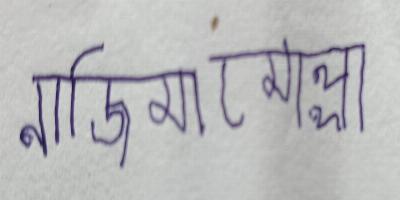 নাজিমা মোল্লা